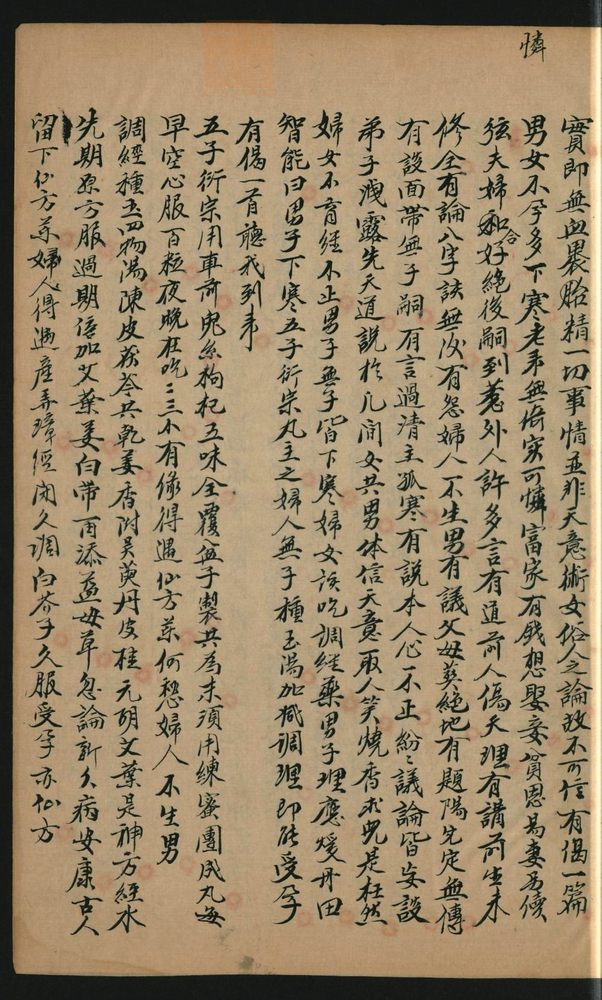 憐
實即無血裹胎精一切事情並非天意術女俗人之論救不可信有偈一篇
男女不孕多下寒老來無倚實可憐富家有錢想娶妾貧思易妻另續
弦夫婦和合好絕後嗣到惹外人許多言有道前人傷天理有講前生未
修全有論八字該無後有怨婦人不生男有議父母葬絕地有題陽先定無傳
有設面帶無子嗣有言過清主孤寒有說本人心不正紛紛議論皆妄設
弟子洩露先天道說於凡間女共男休信天意取人笑燒香求兒是枉然
婦女不育經不止男子無子皆下寒婦女該吃調經藥男子理應煖丹田
智能曰男子下寒五子衍宗丸主之婦人無子種玉湯加減調理即能受孕
有偈一首聽我到來
五子衍宗用車前兔絲枸杞五味全覆盆子製共為末須用練蜜團成丸每
早空心服百粒夜晚在吃二三小有緣得遇仙方藥何愁婦人不生男
調經種玉四物湯陳皮茯苓共乾姜香附吳萸丹皮桂元胡艾葉是神方經水
先期原方服過期倍加艾葉姜白帶再添益母草忽論新久病安康古人
留下仙方藥婦人得遇產弄璋經閉久調白芥子久服受孕亦仙方